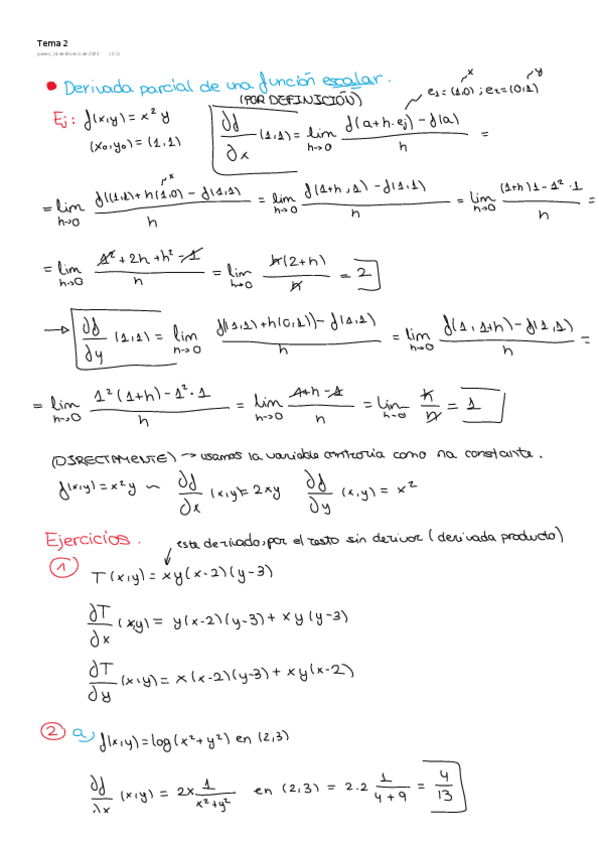 Tema 2
● Derivada parcial de una función escalar.
(POR DEFINICIÓN)
x y
e₁ = (1,0) ; e₂ = (0,1)
Ej: f(x,y) = x² y
(x₀,y₀) = (1,1)
∂f/∂x (1,1) = lim h→0 f(a+h·ej) - f(a) / h =
x
= lim h→0 f((1,1)+h(1,0) - f(1,1) / h = lim h→0 f(1+h,1) - f(1,1) / h = lim h→0 (1+h)1 - 1²·1 / h =
= lim h→0 1² + 2h + h² - 1 / h = lim h→0 h(2+h) / h = 2
→ ∂f/∂y (1,1) = lim h→0 f((1,1)+h(0,1)) - f(1,1) / h = lim h→0 f(1,1+h) - f(1,1) / h =
= lim h→0 1²(1+h) - 1²·1 / h = lim h→0 1+h-1 / h = lim h→0 h/h = 1
(DIRECTAMENTE) → usamos la variable contraria como na constante.
f(x,y) = x²y ~ ∂f/∂x (x,y) = 2xy ∂f/∂y (x,y) = x²
Ejercicios.
esta derivado, por el resto sin derivar (derivada producto)
① T(x,y) = xy(x-2)(y-3)
∂T/∂x (x,y) = y(x-2)(y-3) + xy(y-3)
∂T/∂y (x,y) = x(x-2)(y-3) + xy(x-2)
② a) f(x,y) = log(x²+y²) en (2,3)
∂f/∂x (x,y) = 2x 1/x²+y² en (2,3) = 2·2 1/4+9 = 4/13